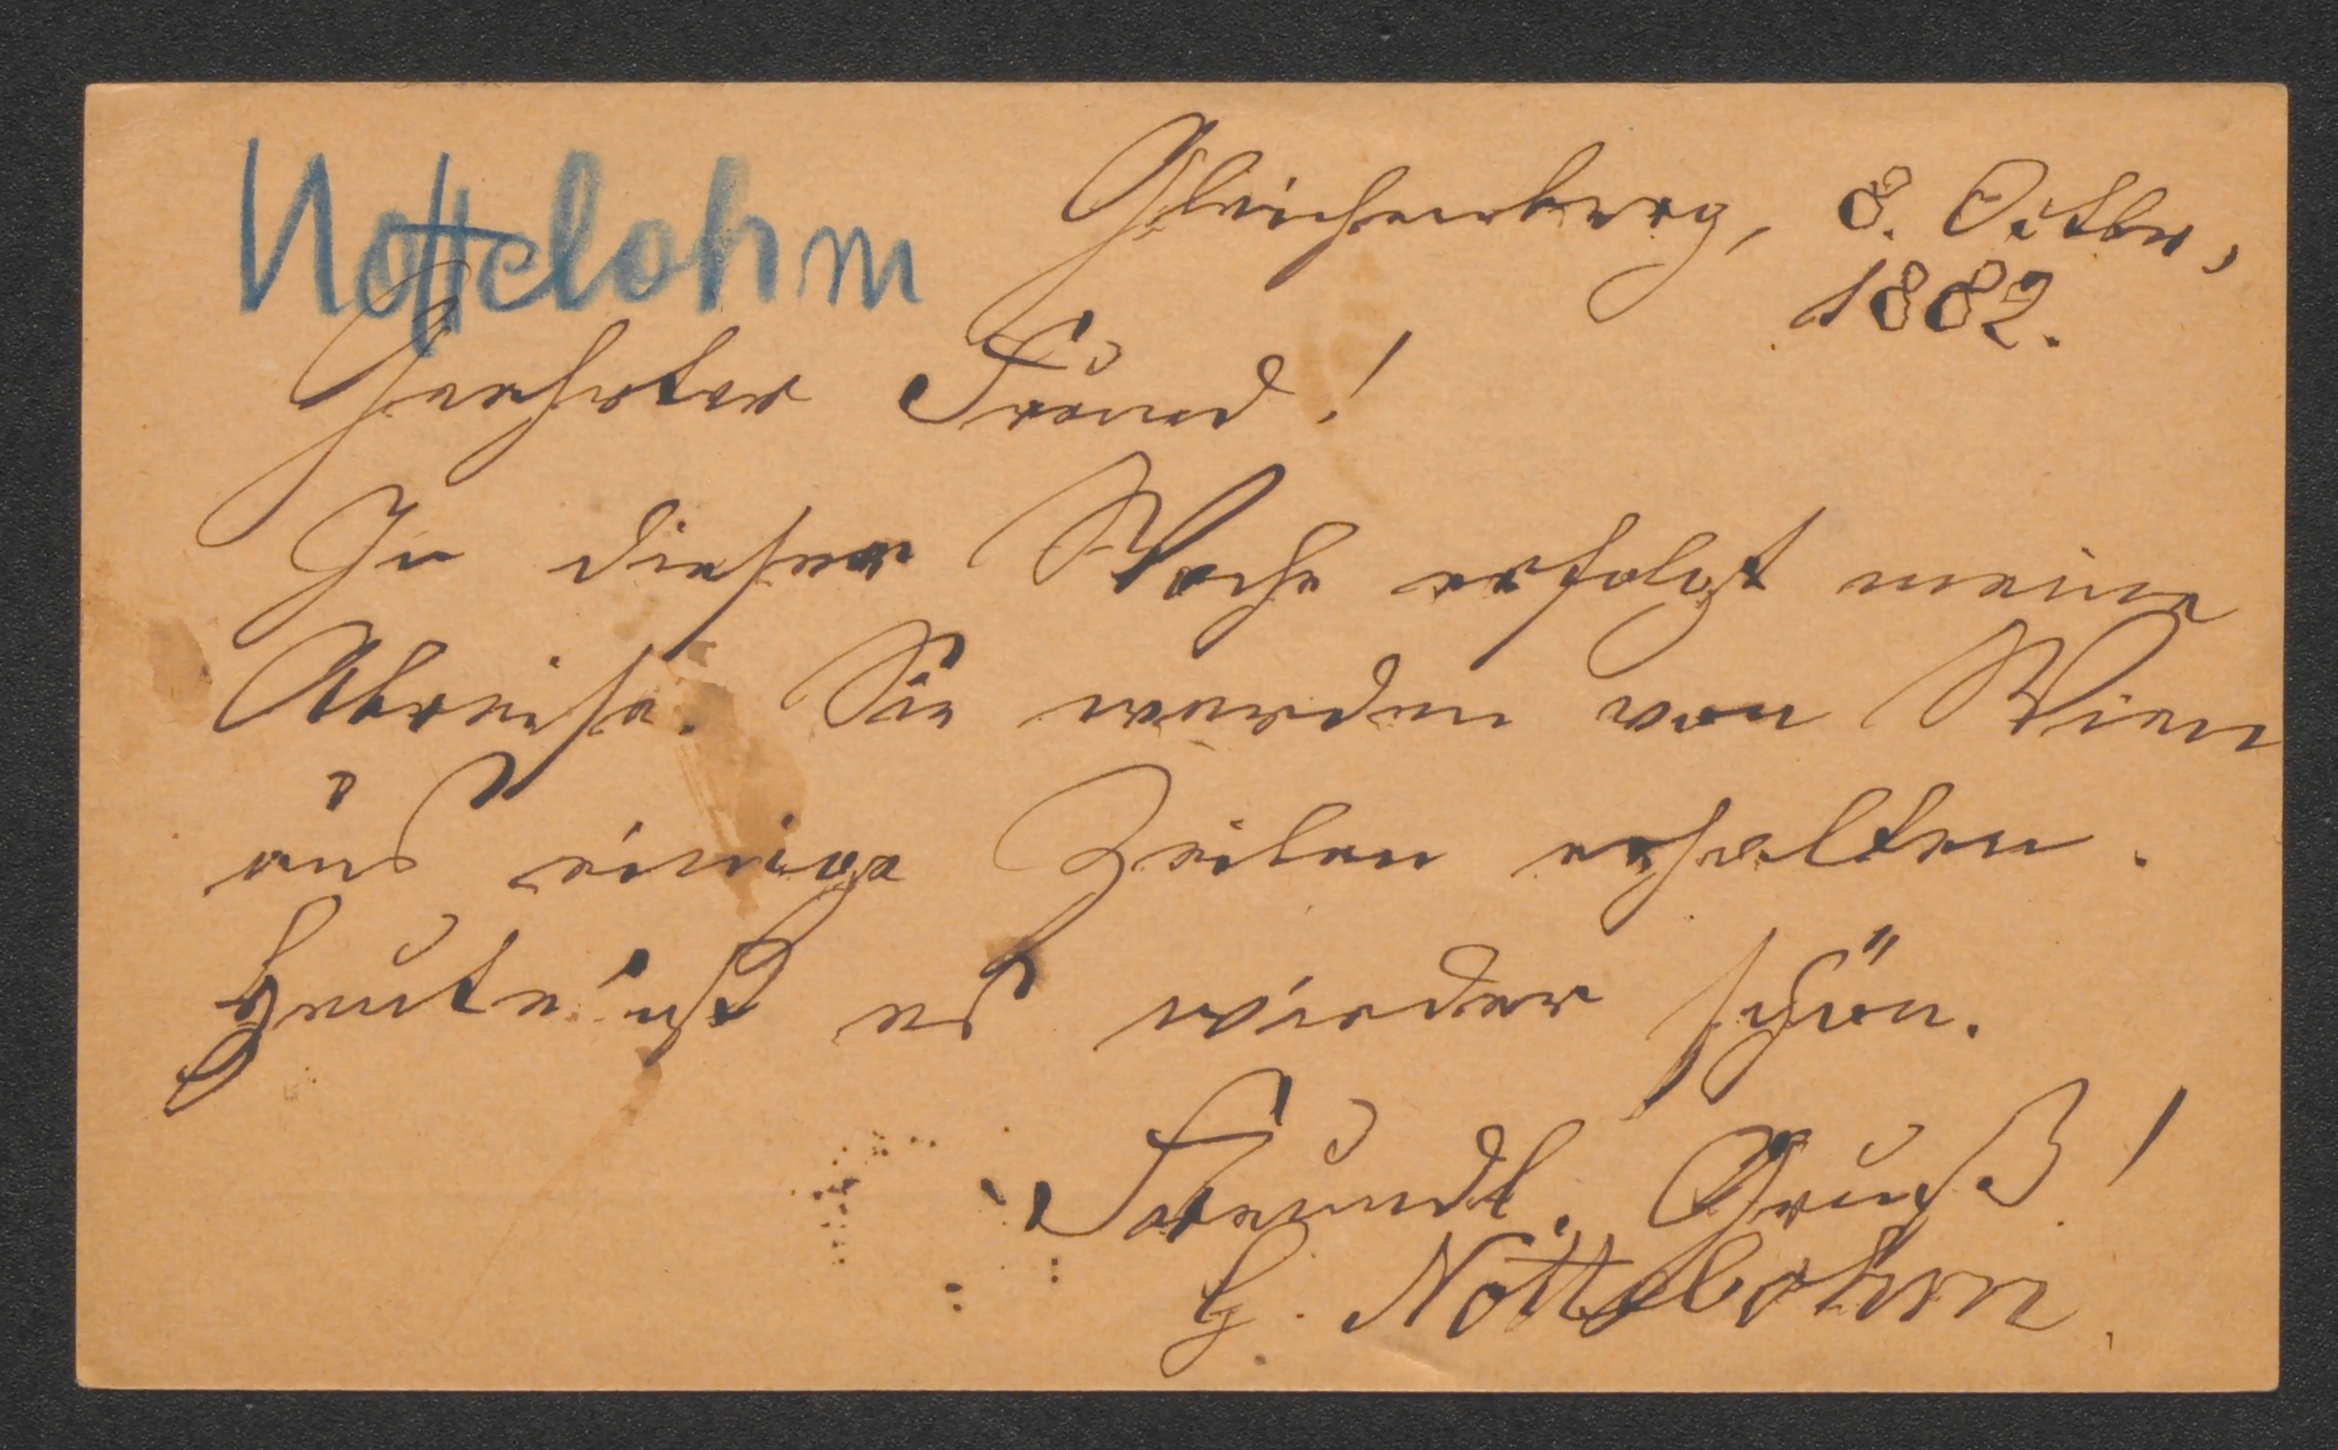 Nottebohm
Gleichenberg, 8. Octbr,
1882.
Geehrter Freund!
In dieser Woche erfolgt meine
Abreise. Sie werden von Wien
aus einige Zeilen erhalten.
Heute ist es wieder schön.
Freundl. Gruß!
G. Nottebohm.